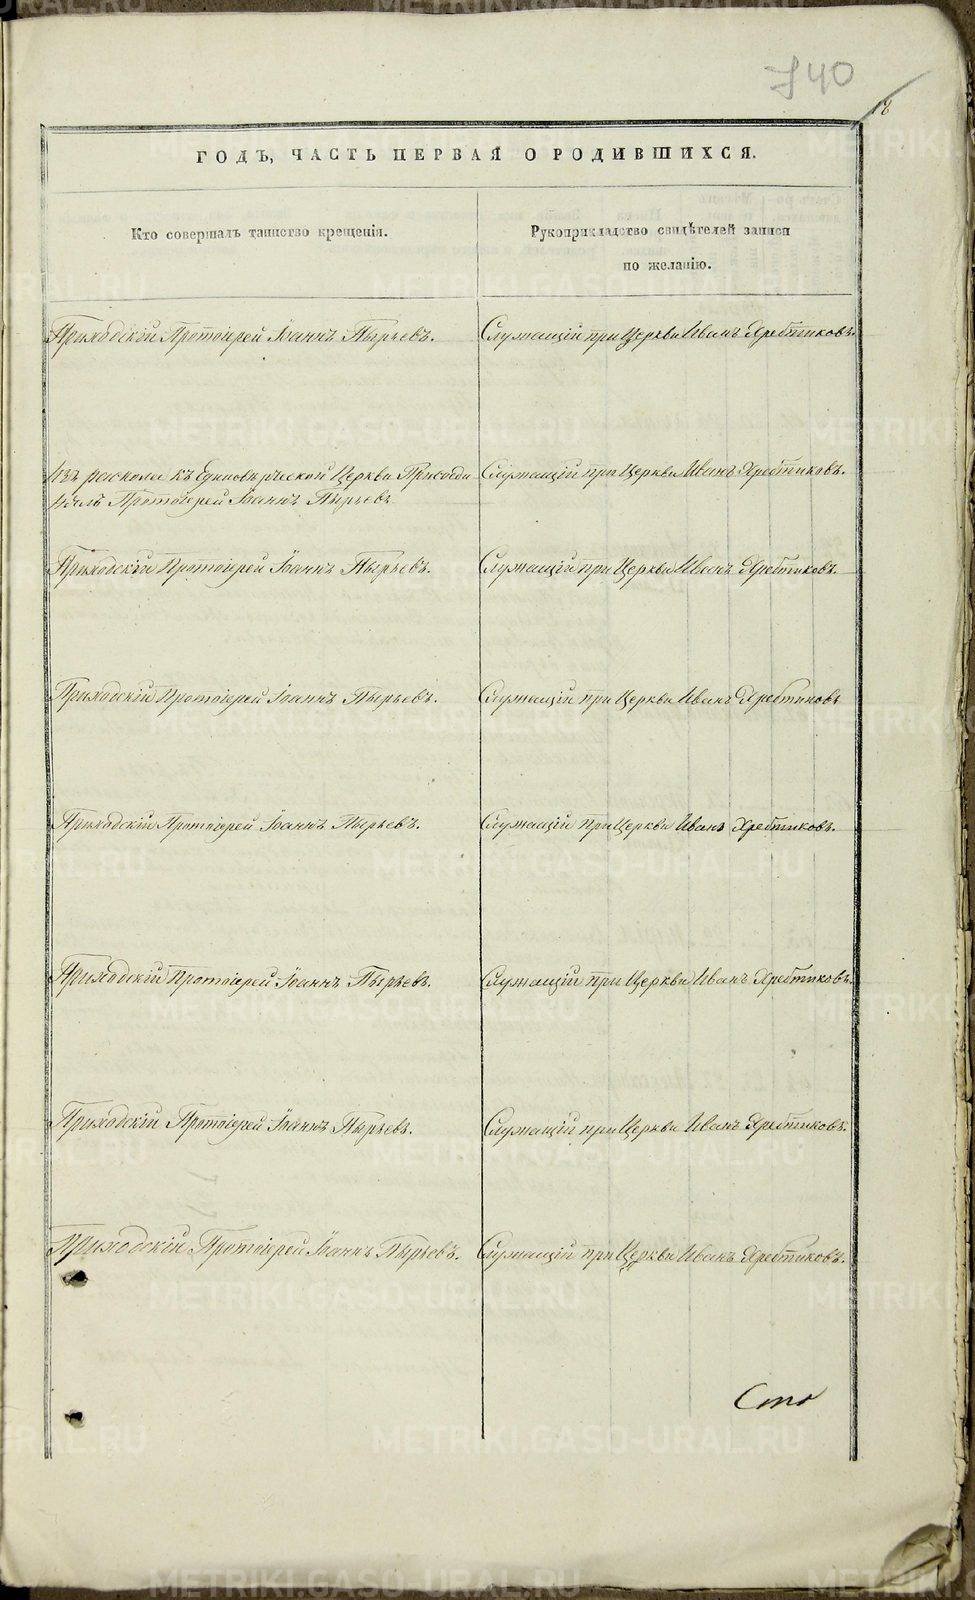 740
18
ГОДЪ, ЧАСТЬ ПЕРВАЯ О РОДИВШИХСЯ.
Кто совершалъ таинство крещенія.
Рукоприкладство свидѣтелей записи
по желанію.
Приходскій Протоіерей Іоаннъ Пырьевъ. Служащій при Церкви Иванъ Хребтиковъ.
Изъ раскола къ Единовѣрческой Церкви Присоеди Служащій при Церкви Иванъ Хребтиковъ.
нилъ Протоіерей Іоаннъ Пырьевъ
Приходскій Протоіерей Іоаннъ Пырьевъ. Служащій при Церкви Иванъ Хребтиковъ.
Приходскій Протоіерей Іоаннъ Пырьевъ. Служащій при Церкви Иванъ Хребтиковъ
Приходскій Протоіерей Іоаннъ Пырьевъ. Служащій при Церкви Иванъ Хребтиковъ.
Приходскій Протоіерей Іоаннъ Пырьевъ. Служащій при Церкви Иванъ Хребтиковъ.
Приходскій Протоіерей Іоаннъ Пырьевъ. Служащій при Церкви Иванъ Хребтиковъ.
Приходскій Протоіерей Іоаннъ Пырьевъ. Служащій при Церкви Иванъ Хребтиковъ.
METRIKI.GASO-URAL.RU